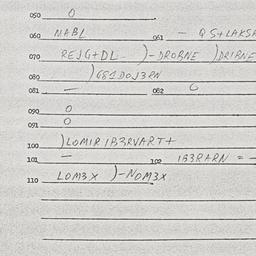 050 0
060 NABL 061 - QS+LAKSA
070 REJG+DL )-DRORNE )DRIRNE
080 )G81DOJ3RN
081 - 082 0
090 0
091 0
100 )LOMIR IB3RVART+
101 - 102 IB3RARN = -
110 LOM3X )-NOM3X